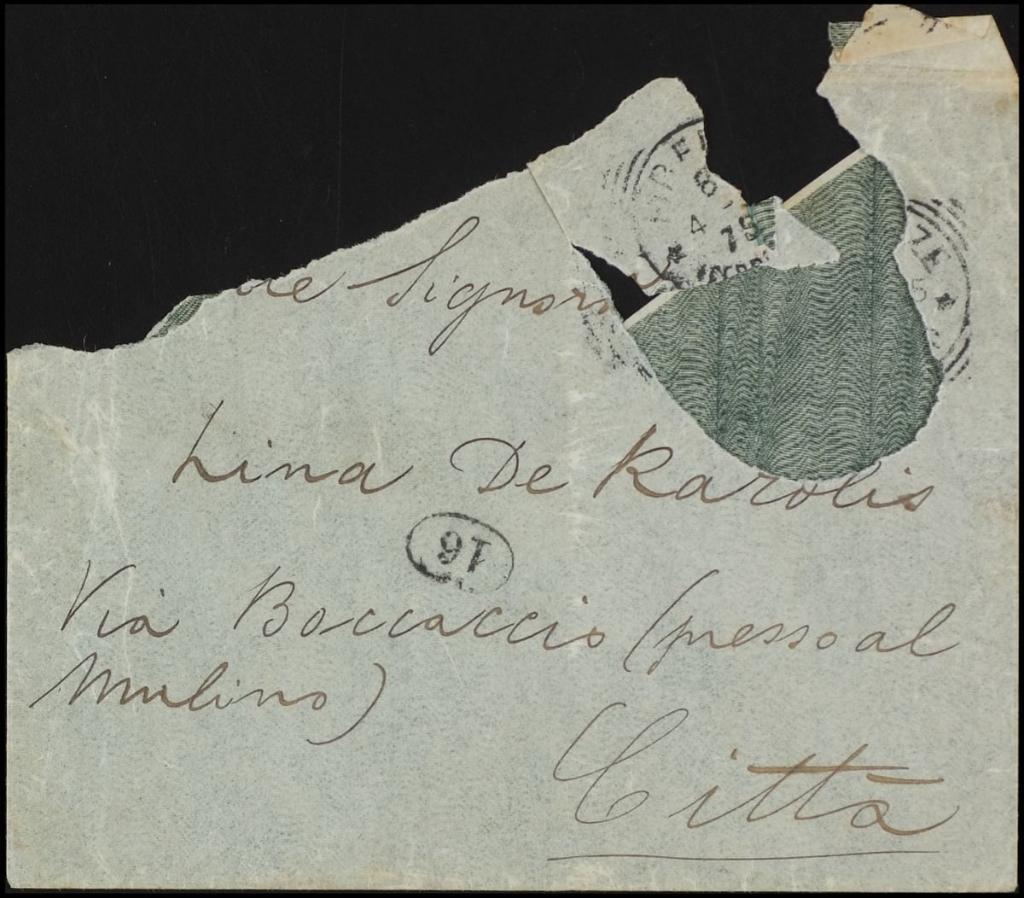 Signora
Lina De Karolis
16
Via Boccaccio (presso al
Mulino)
Città